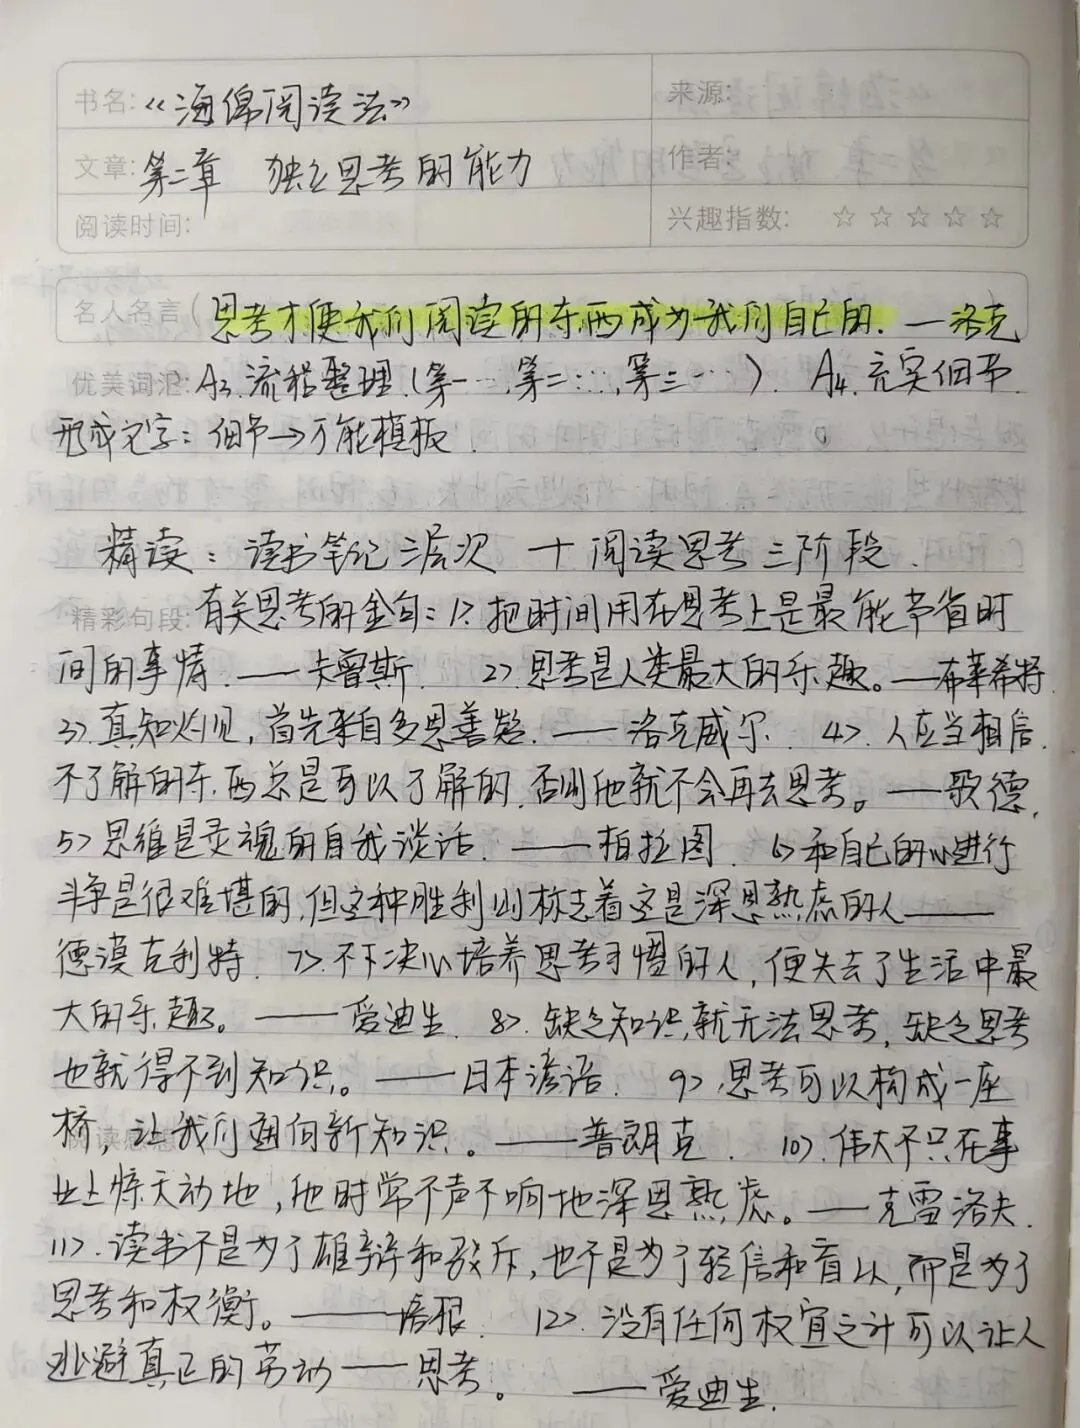 书名:《海绵阅读法》 来源:
文章: 第二章 独立思考的能力 作者:
阅读时间: 兴趣指数: ☆☆☆☆☆
名人名言(思考才使我们阅读的东西成为我们自己的. —洛克
优美词汇: A3. 流程整理.(第一…,第二…,第三…). A4. 充实细节.
形成文字: 细节→万能模板.
精读: 读书笔记三层次 + 阅读思考三阶段.
精彩句段: 有关思考的金句: 1>. 把时间用在思考上是最能节省时
间的事情. ——卡曾斯. 2>. 思考是人类最大的乐趣。——布莱希特.
3>. 真知灼见, 首先来自多思善疑. ——洛克威尔. 4>. 人应当相信,
不了解的东西总是可以了解的, 否则他就不会再去思考。——歌德.
5> 思维是灵魂的自我谈话. ——柏拉图. 6> 和自己的心进行
斗争是很难堪的, 但这种胜利则标志着这是深思熟虑的人——
德谟克利特. 7>. 不下决心培养思考习惯的人, 便失去了生活中最
大的乐趣。——爱迪生. 8>. 缺乏知识就无法思考, 缺乏思考
也就得不到知识。——日本谚语. 9>. 思考可以构成一座
桥, 让我们通向新知识。——普朗克. 10>. 伟大不只在事
业上惊天动地, 他时常不声不响地深思熟虑。——克雷洛夫.
11>. 读书不是为了雄辩和驳斥, 也不是为了轻信和盲从, 而是为了
思考和权衡。——培根. 12>. 没有任何权宜之计可以让人
逃避真正的劳动——思考。 ——爱迪生.